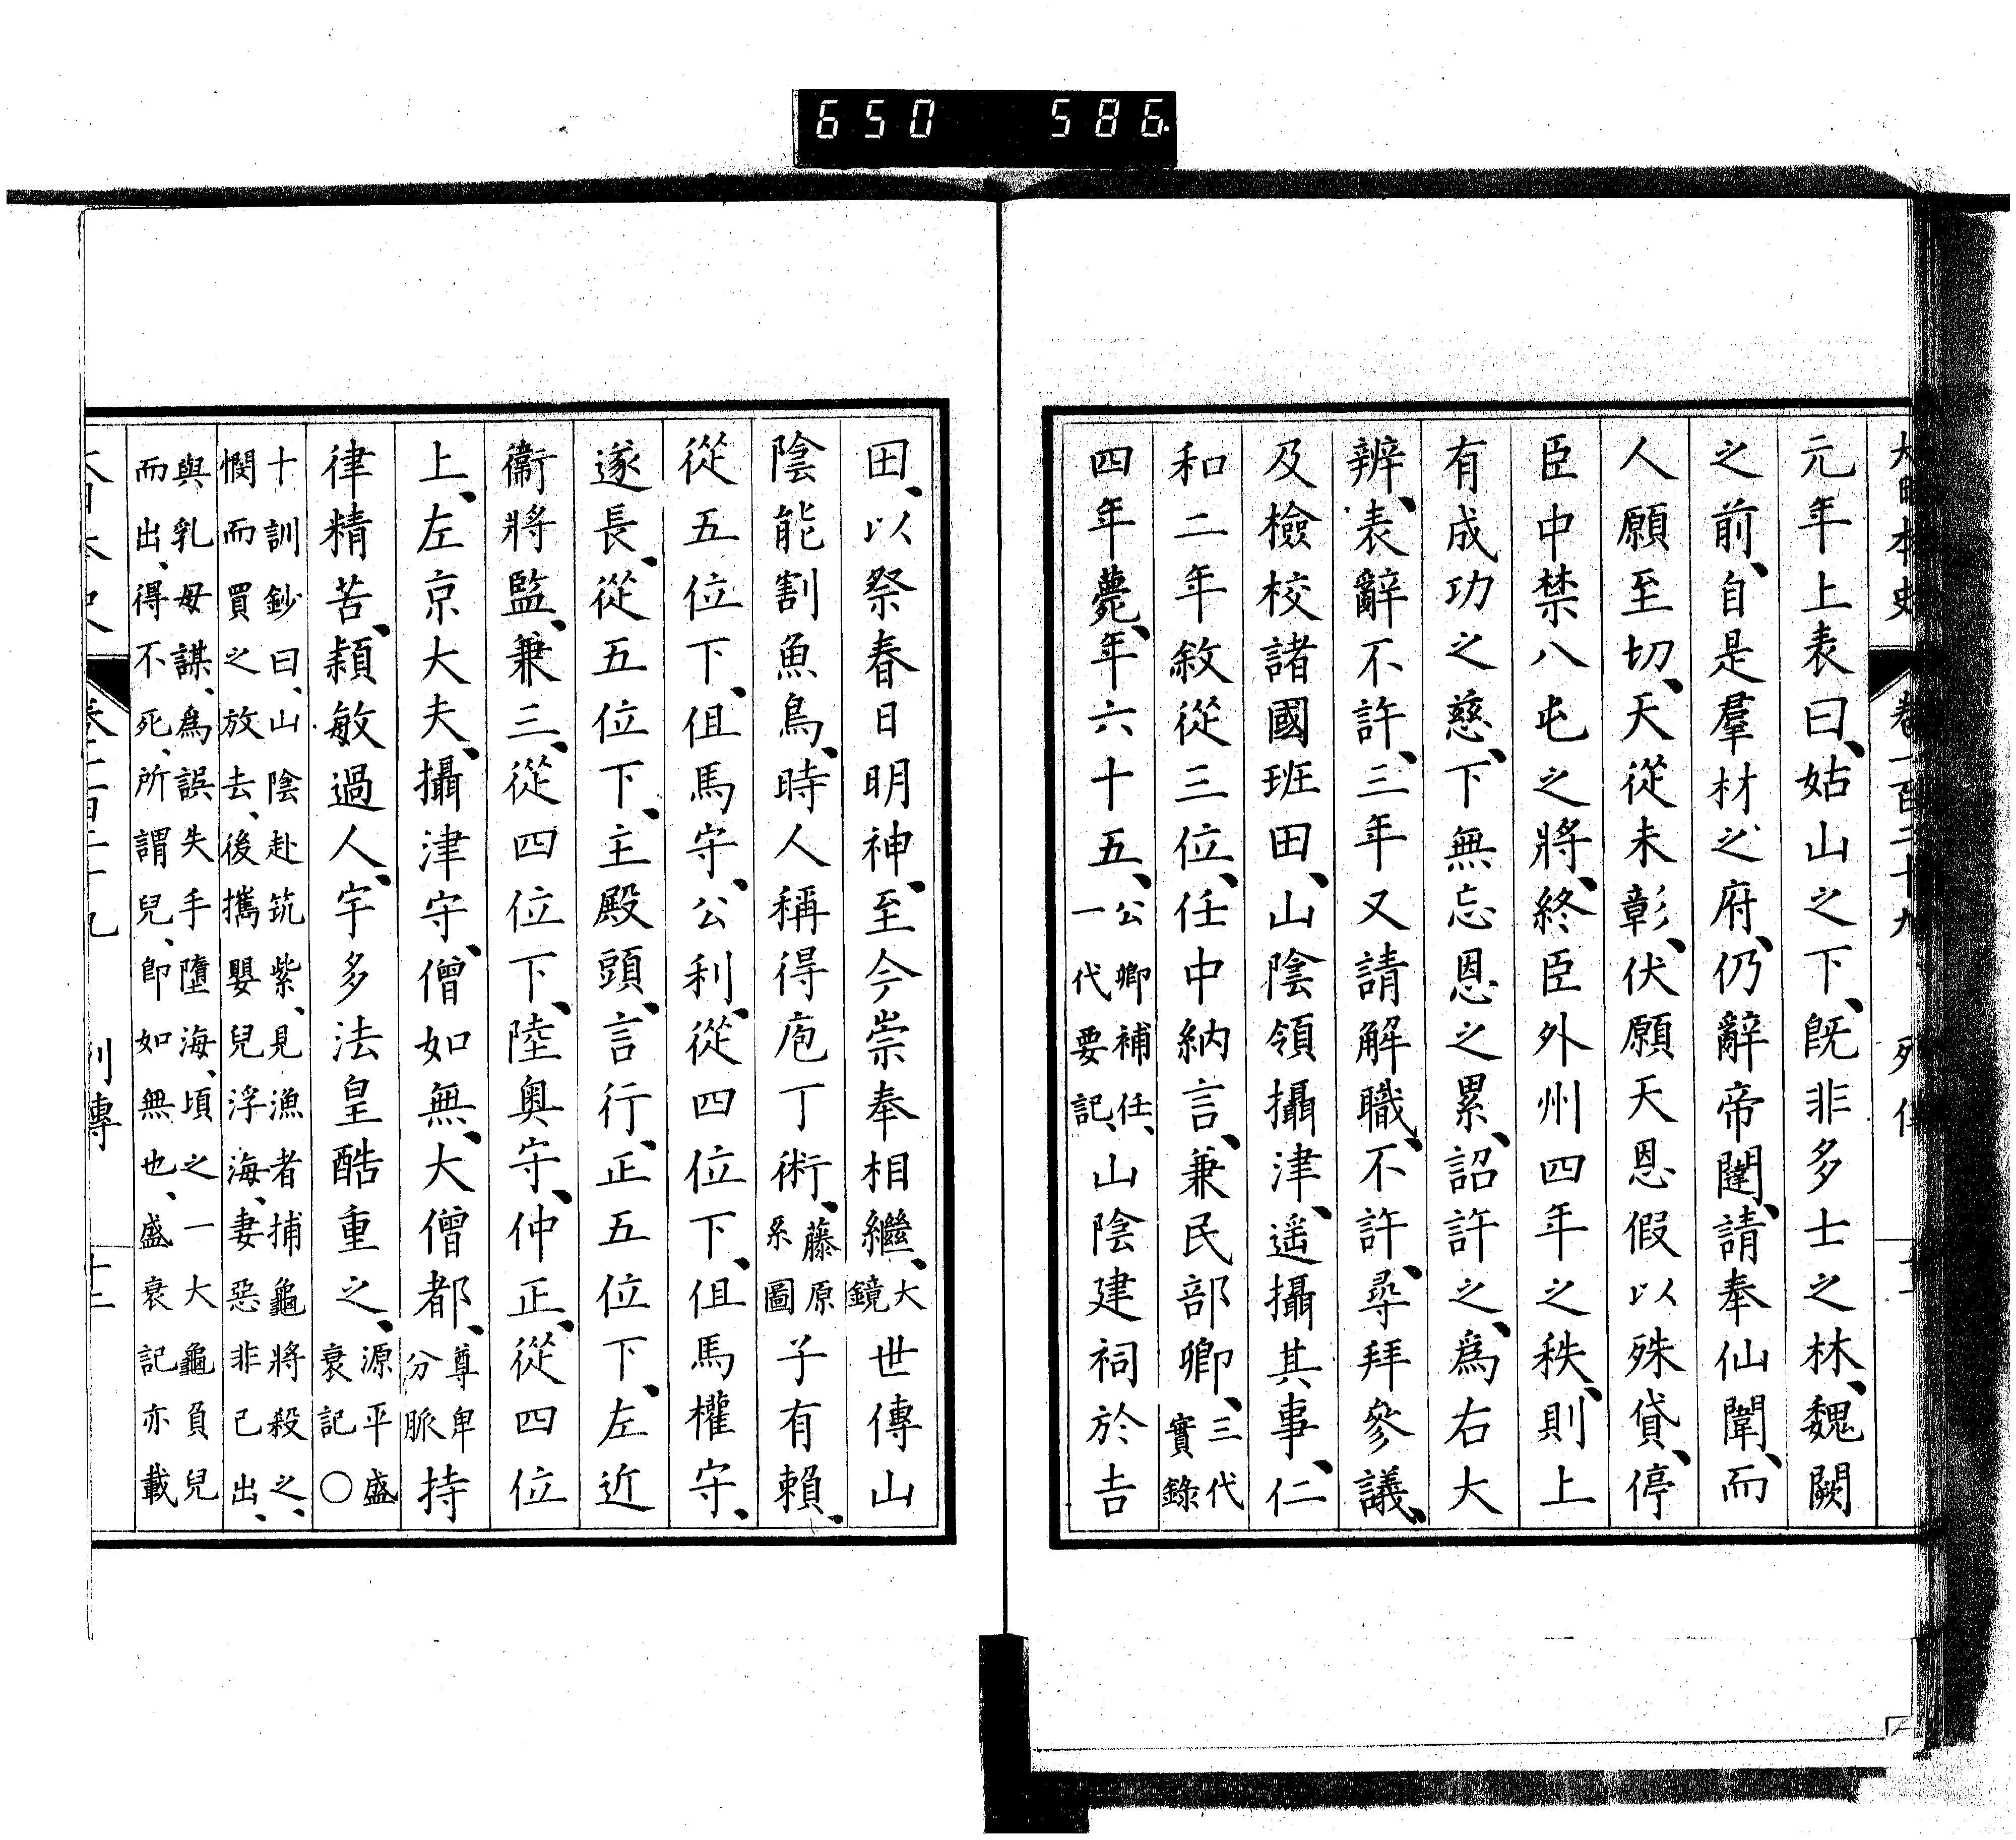 650 586.
大日本史 卷一百二十九 列傳
元年上表曰、姑山之下、既非多士之林、魏闕
之前、自是羣材之府、仍辭帝闥、請奉仙闈、而
人願至切、天從未彰、伏願天恩假以殊貸、停
臣中禁八屯之將、終臣外州四年之秩、則上
有成功之慈、下無忘恩之累、詔許之、爲右大
辨、表辭不許、三年又請解職、不許、尋拜參議、
及檢校諸國班田、山陰領攝津、遥攝其事、仁
和二年敘從三位、任中納言、兼民部卿、三代實錄
四年薨、年六十五、公卿補任、一代要記、山陰建祠於吉
田、以祭春日明神、至今崇奉相繼、大鏡世傳山
陰能割魚鳥、時人稱得庖丁術、藤原系圖子有賴、
從五位下、但馬守、公利、從四位下、但馬權守、
遂長、從五位下、主殿頭、言行、正五位下、左近
衞將監、兼三、從四位下、陸奧守、仲正、從四位
上、左京大夫、攝津守、僧如無、大僧都、尊卑分脈持
律精苦、穎敏過人、宇多法皇酷重之、源平盛衰記○
十訓鈔曰、山陰赴筑紫、見漁者捕龜將殺之、
憫而買之放去、後攜嬰兒浮海、妻惡非己出、
與乳母謀、爲誤失手墮海、頃之一大龜負兒
而出、得不死、所謂兒、卽如無也、盛衰記亦載
大日本史 卷一百二十九 列傳 十二